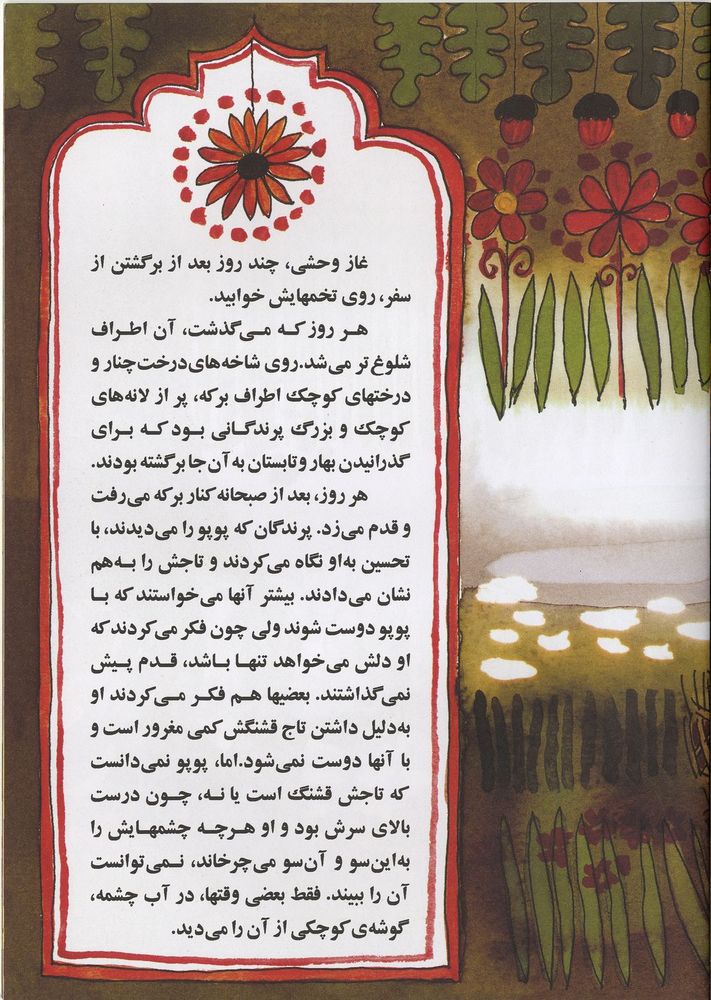 غاز وحشی، چند روز بعد از برگشتن از
سفر، روی تخمهایش خوابید.
هر روز که می‌گذشت، آن اطراف
شلوغ‌تر می‌شد. روی شاخه‌های درخت چنار و
درختهای کوچک اطراف برکه، پر از لانه‌های
کوچک و بزرگ پرندگانی بود که برای
گذرانیدن بهار و تابستان به آن جا برگشته بودند.
هر روز، بعد از صبحانه کنار برکه می‌رفت
و قدم می‌زد. پرندگان که پوپو را می‌دیدند، با
تحسین به‌او نگاه می‌کردند و تاجش را به‌هم
نشان می‌دادند. بیشتر آنها می‌خواستند که با
پوپو دوست شوند ولی چون فکر می‌کردند که
او دلش می‌خواهد تنها باشد، قدم پیش
نمی‌گذاشتند. بعضیها هم فکر می‌کردند او
به‌دلیل داشتن تاج قشنگش کمی مغرور است و
با آنها دوست نمی‌شود. اما، پوپو نمی‌دانست
که تاجش قشنگ است یا نه، چون درست
بالای سرش بود و او هرچه چشمهایش را
به‌این‌سو و آن‌سو می‌چرخاند، نمی‌توانست
آن را ببیند. فقط بعضی وقتها، در آب چشمه،
گوشه‌ی کوچکی از آن را می‌دید.